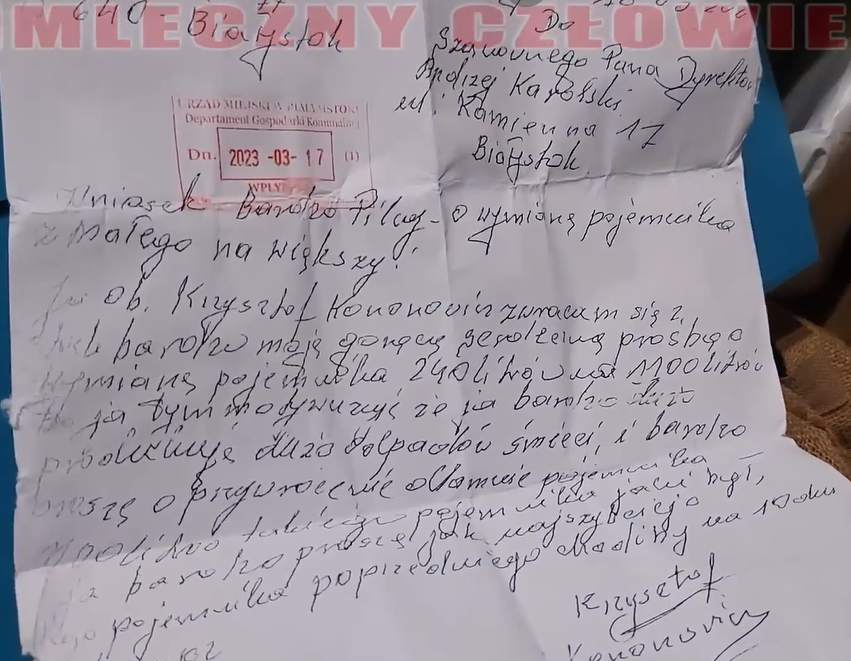 MLECZNY CZŁOWIE
640 - Białystok
Do
Szanownego Pana Dyrektor
Andrzej Karolski
ul. Kamienna 17
Białystok
URZĄD MIEJSKI W BIAŁYMSTOKU
Departament Gospodarki Komunalnej
Dn. 2023 -03- 17 (1)
WPŁY
Wniosek Bardzo Pilny - o wymianę pojemnika
z małego na większy!
Ja ob. Krzysztof Kononowicz zwracam się z
bardzo moją gorącą serdeczną prośbę o
wymianę pojemnika 240 litrów na 1100 litrów
to ja tym motywuję że ja bardzo dużo
produkuję dużo odpadów śmieci, i bardzo
proszę o przywrócenie pojemnika
1100 litrów takiego pojemnika jaki był,
ja bardzo proszę jak najszybciej o
tego pojemnika poprzedniego na
Krzysztof
Kononowicz